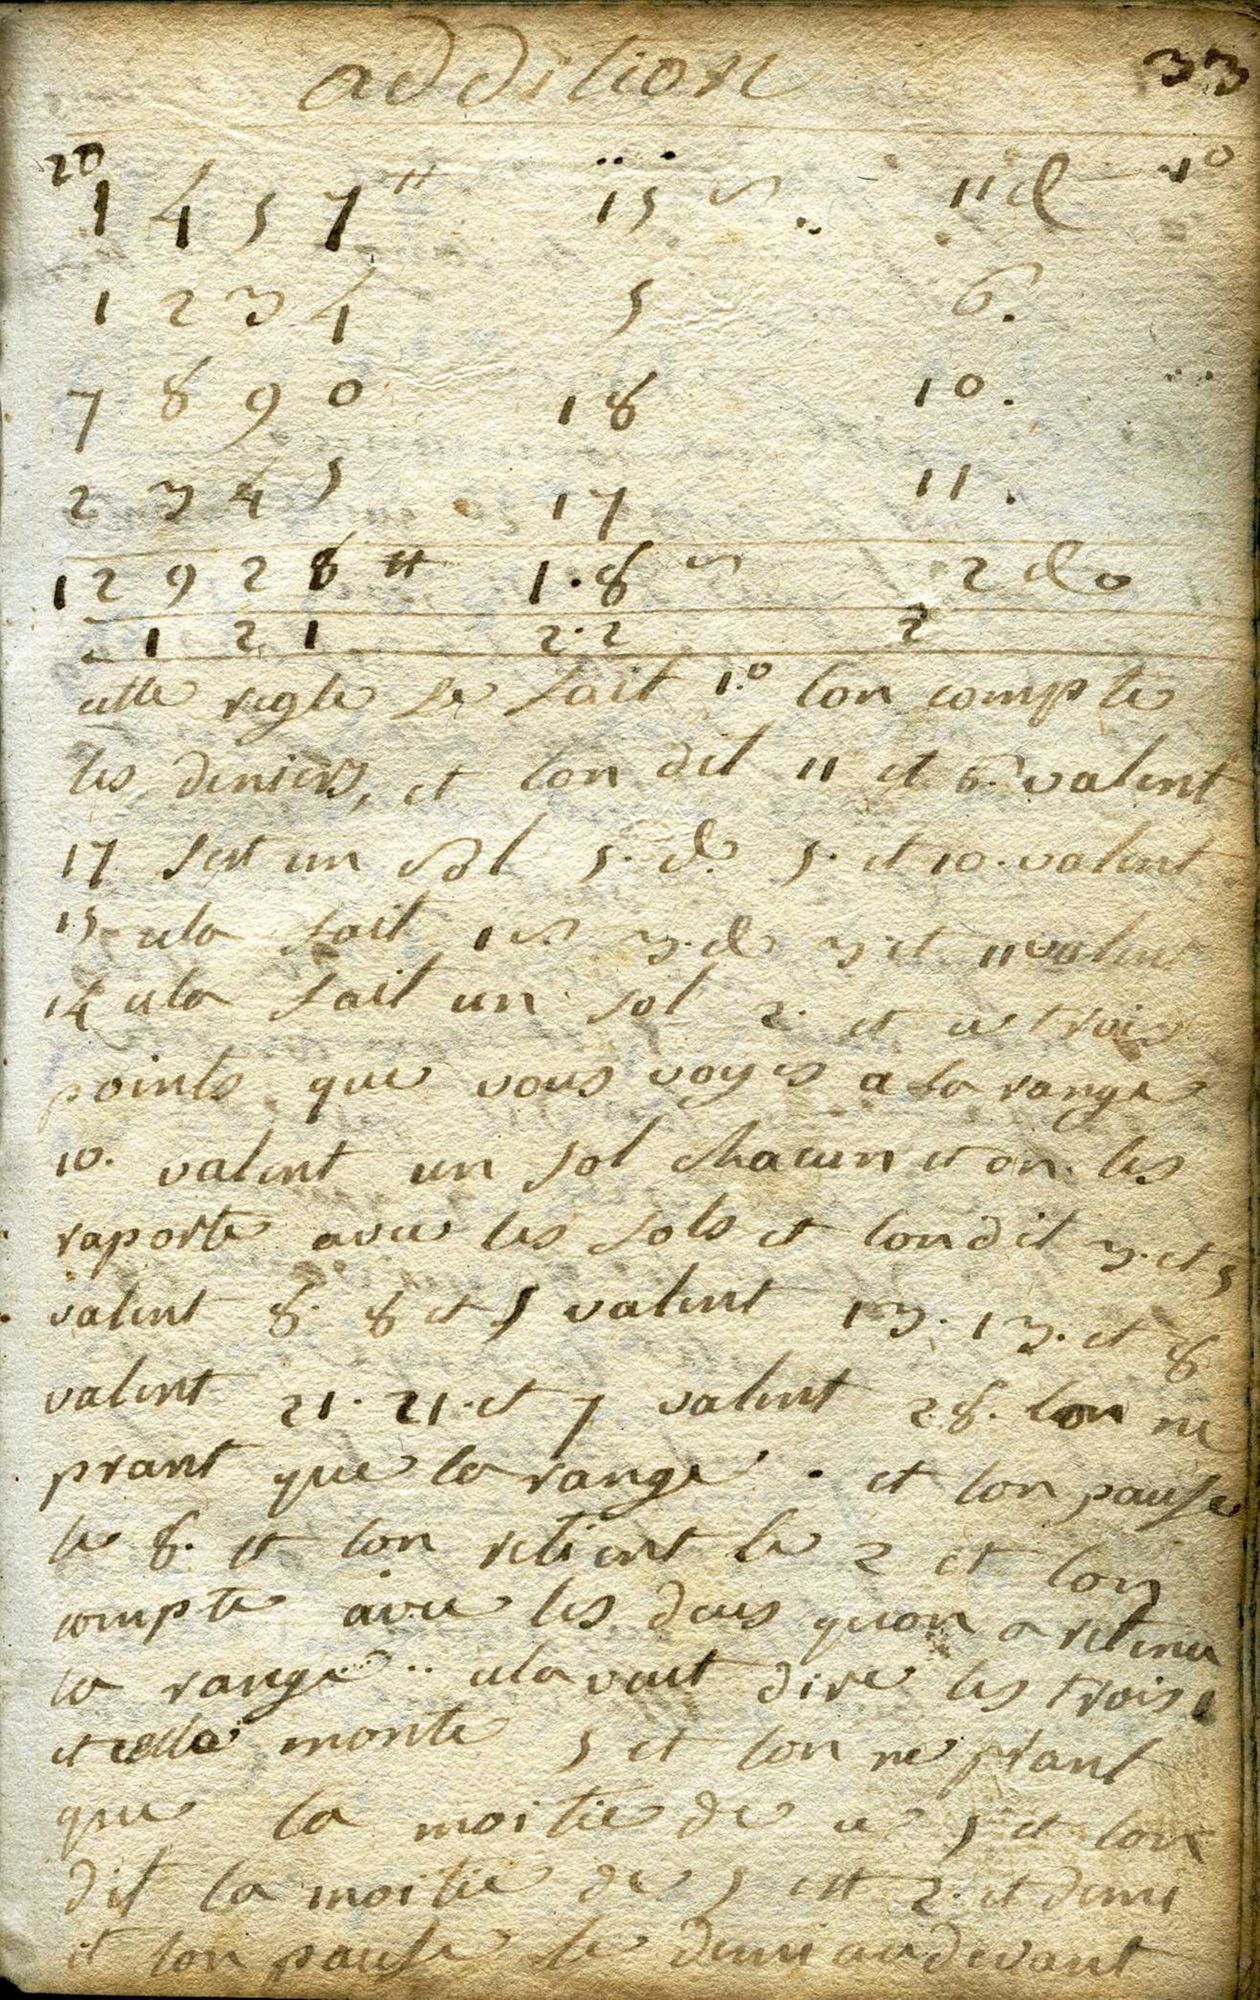 addition 33
20 1º
1 4 5 7 ₶ 15 s 11 d
1 2 3 4 5 6.
7 8 9 0 18 10.
2 3 4 5 17 11.
12 9 2 8 ₶ 1.8 s 2 do
1 2 1 2.2 2
cette regle se fait 1.º lon compte
les deniers, et lon dit 11 et 6. valent
17 sest un sol 5. d. 5. et 10. valent
15 cela fait 1 s 3. d 3 et 11 valent
14 cela fait un sol 2. et ce trois
points que vous voyes a la range
10. valent un sol chacun et on les
raporte avec les sols et londit 3. et 5
valent 8. 8 et 5 valent 13. 13. et 8
valent 21. 21. et 7 valent 28. lon ne
prant que la range . et lon pause
le 8. et lon retient le 2 et lon
compte avec les deus quon a retenu
la range .. cela vaut dire les trois 1
et celle monte 5 et lon ne prant
que la moitie de ce 5 et lon
dit la moitie de 5 est 2. et demi
et lon pause le demi audevant